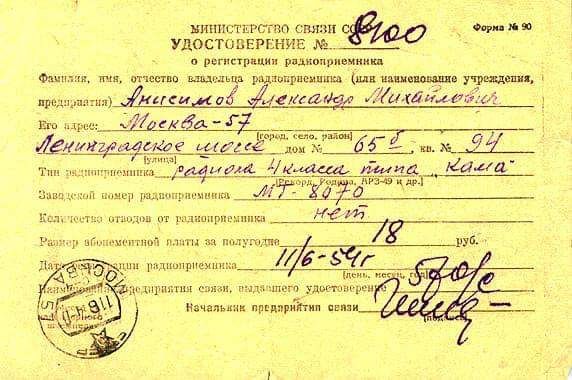 МИНИСТЕРСТВО СВЯЗИ СССР
Форма № 90
УДОСТОВЕРЕНИЕ № 8400
о регистрации радиоприемника
Фамилия, имя, отчество владельца радиоприемника (или наименование учреждения,
предприятия) Анисимов Александр Михайлович
Его адрес: Москва-57
[город, село, район]
Ленинградское шоссе дом № 65б, кв. № 94
[улица]
Тип радиоприемника радиола 4 класса типа „Кама"
[Рекорд, Родина, АРЗ-49 и др.]
Заводской номер радиоприемника МТ-8970
Количество отводов от радиоприемника нет
Размер абонементной платы за полугодие 18 руб.
Дата регистрации радиоприемника 11/6-54г
[день, месяц, год]
Наименование предприятия связи, выдавшего удостоверение 57 о/с
Начальник предприятия связи
[подпись]
МОСКВА 57